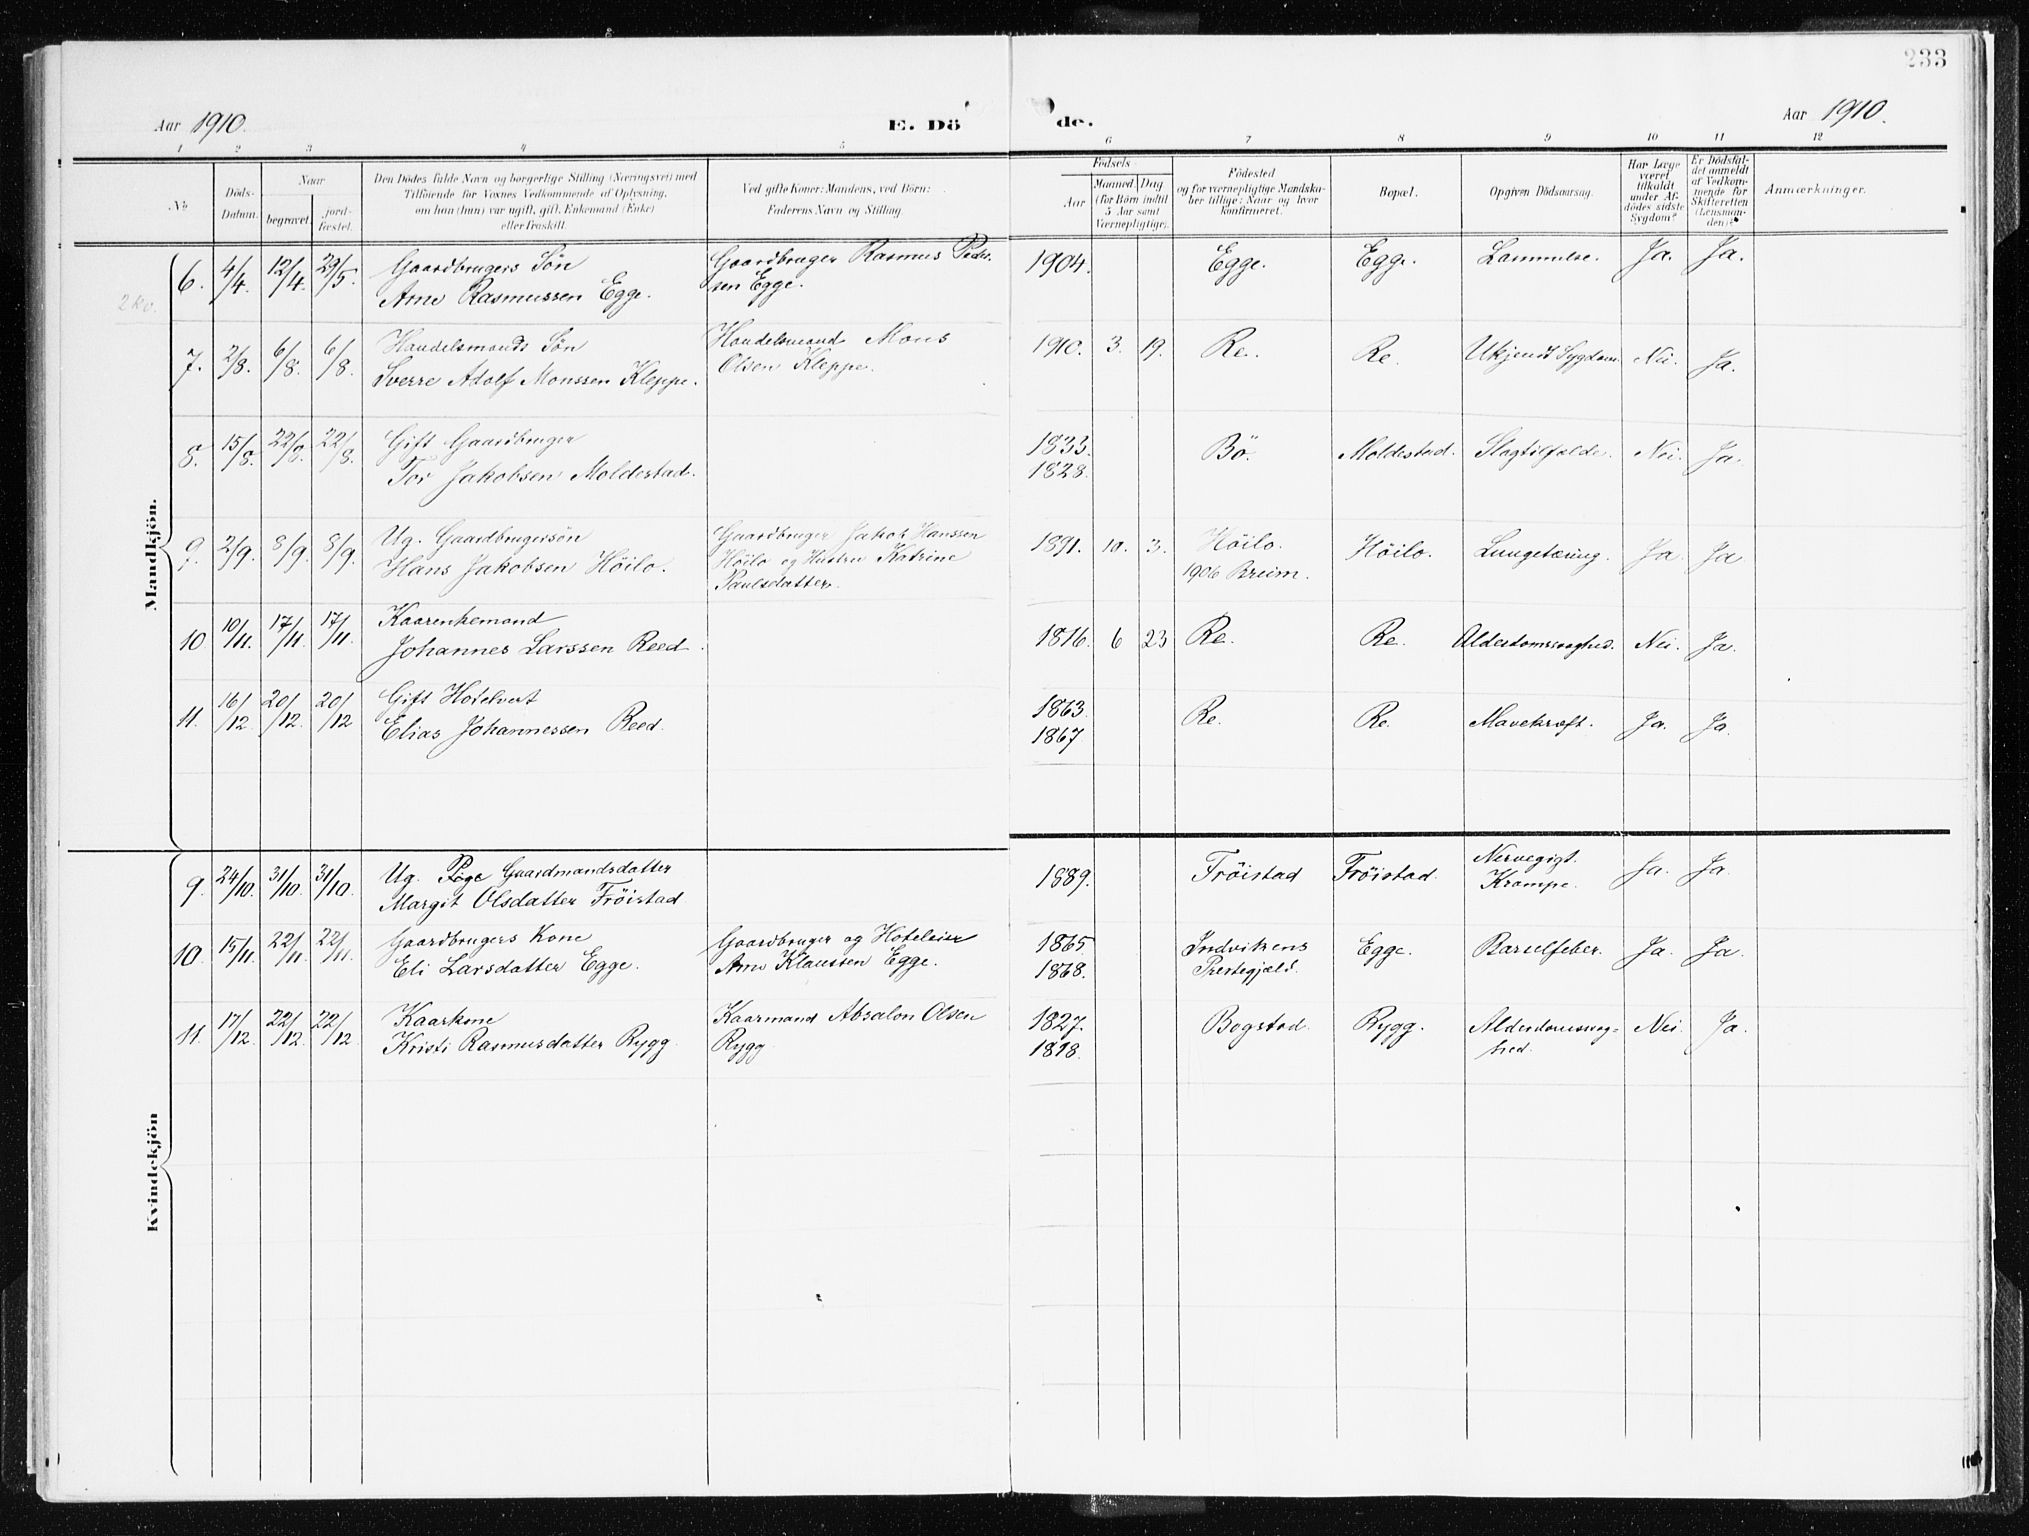 233
Aar 1910.
E. Dö
de.
Aar 1910.
1 2 3 4 5 6 7 8 9 10 11 12
No
Döds-
Datum.
Naar
begravet.
jord-
fæstet.
Den Dödes fulde Navn og borgerlige Stilling (Næringsvei) med
Tilföiende for Voxnes Vedkommende af Oplysning,
om han (hun) var ugift, gift, Enkemand (Enke)
eller fraskilt.
Ved gifte Koner: Mandens, ved Börn:
Faderens Navn og Stilling
Födsels
Aar
Maaned Dag
(for Börn indtil
5 Aar samt
Værnepligtige).
Födested
og for værnepligtige Mandska-
ber tillige: Naar og hvor
konfirmeret.
Bopæl.
Opgiven Dödsaarsag.
Har Læge
været
tilkaldt
under Af-
dödes sidste
Sygdom?
Er Dödsfal-
det anmeldt
af Vedkom-
mende for
Skifteretten
(Lensman-
den)?
Anmærkninger.
Mandkjön.
2 kv.
6. 4/4. 12/4. 29/5. Gaardbrugers Sön
Arne Rasmussen Egge.
Gaardbruger Rasmus Peder-
sen Egge.
1904. Egge. Egge. Lammelse. Ja. Ja.
7. 2/8. 6/8. 6/8. Handelsmands Sön
Sverre Adolf Monssen Kleppe.
Handelsmand Mons
Olsen Kleppe.
1910. 3. 19. Re. Re. Ukjendt Sygdom. Nei. Ja.
8. 15/8. 22/8. 22/8. Gift Gaardbruger
Tor Jakobsen Moldestad.
1833.
1828.
Bö. Moldestad. Slagtilfælde. Nei. Ja.
9. 2/9. 8/9. 8/9. Ug. Gaardbrugersön
Hans Jakobsen Höilo.
Gaardbruger Jakob Hanssen
Höilo og Hustru Katrine
Paulsdatter.
1891. 10. 3. Höilo.
1906 Breim.
Höilo. Lungetæring. Ja. Ja
10 10/11. 17/11. 17/11. Kaarenkemand
Johannes Larssen Reed.
1816. 6 23 Re. Re. Alderdomssvaghed. Nei. Ja.
11. 16/12. 20/12. 20/12 Gift Hotelvert
Elias Johannessen Reed.
1863.
1867
Re. Re. Mavekræft. Ja. Ja
Kvindekjön
9. 24/10. 31/10. 31/10. Ug. Pige Gaardmandsdatter
Margit Olsdatter Fröistad
1889. Fröistad Fröistad. Nervegigt.
Krampe.
Ja. Ja
10. 15/11. 22/11. 22/11. Gaardbrugers Kone
Eli Larsdatter Egge.
Gaardbruger og Hoteleier
Arne Klaussen Egge.
1865
1868.
Indvikens
Prestegjæld.
Egge. Barselfeber. Ja. Ja.
11. 17/12. 22/12. 22/12. Kaarkone
Kristi Rasmusdatter Rygg.
Kaarmand Absalon Olsen
Rygg
1827.
1818.
Bogstad. Rygg. Alderdomssvag-
hed.
Nei. Ja.